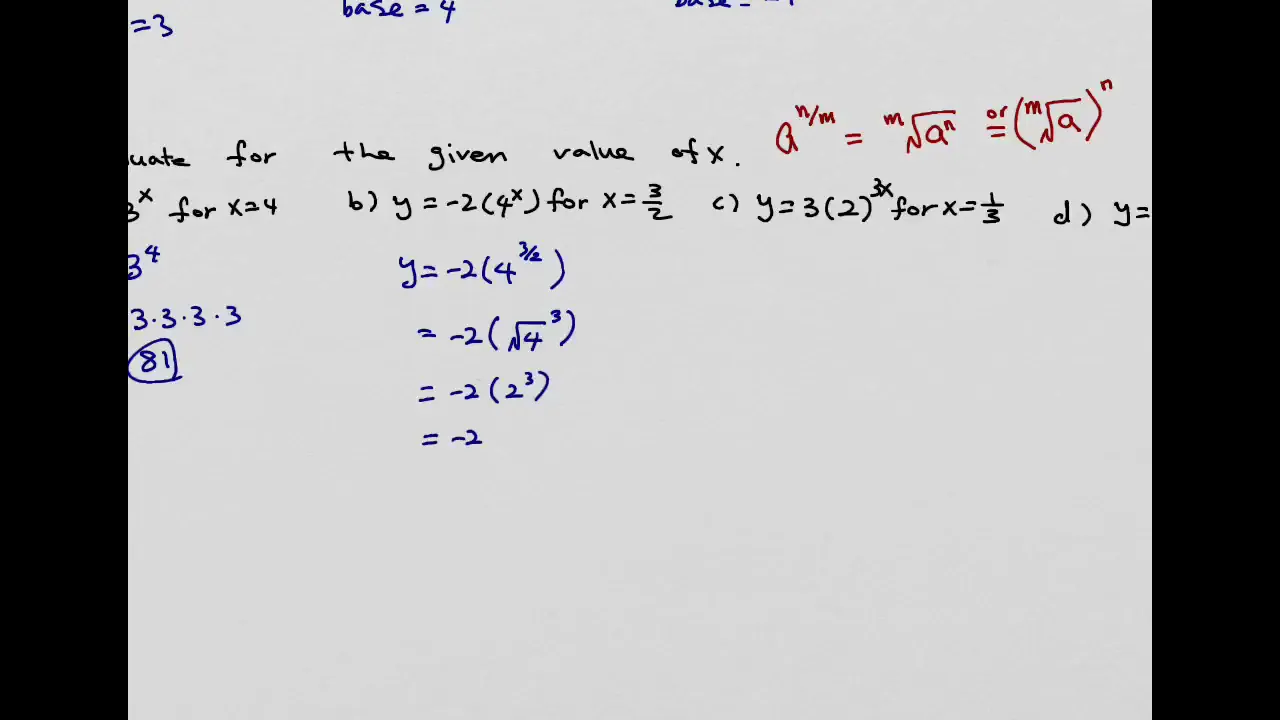 =3
base = 4
uate for the given value of x.
a^{n/m} = ^m√a^n or = (^m√a)^n
3^x for x=4
b) y = -2(4^x) for x = 3/2
c) y = 3(2)^{3x} for x = 1/3
d) y =
3^4
3·3·3·3
81
y = -2(4^{3/2})
= -2(√4^3)
= -2(2^3)
= -2